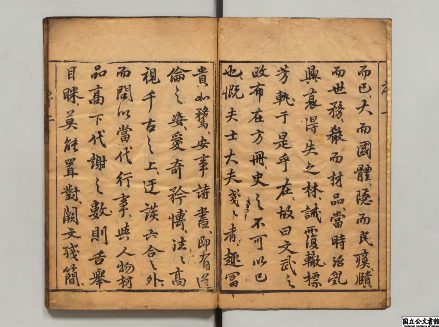 而已大而國體隱而民瘼賾
而世務嚴而材品當時治亂
興衰得失之林誠覆轍標
芳執于是乎在故曰文武之
政布在方冊史之不可以已
也慨夫士大夫戔戔青趣冨
貴如騖安事詩書即有
倫之姿愛奇矜博注之高
視千古之上迂談六合之外
而問以當代行事與人物材
品高下代謝之數則舌舉
目眯莫能置對闕文殘簡
國立公文書館